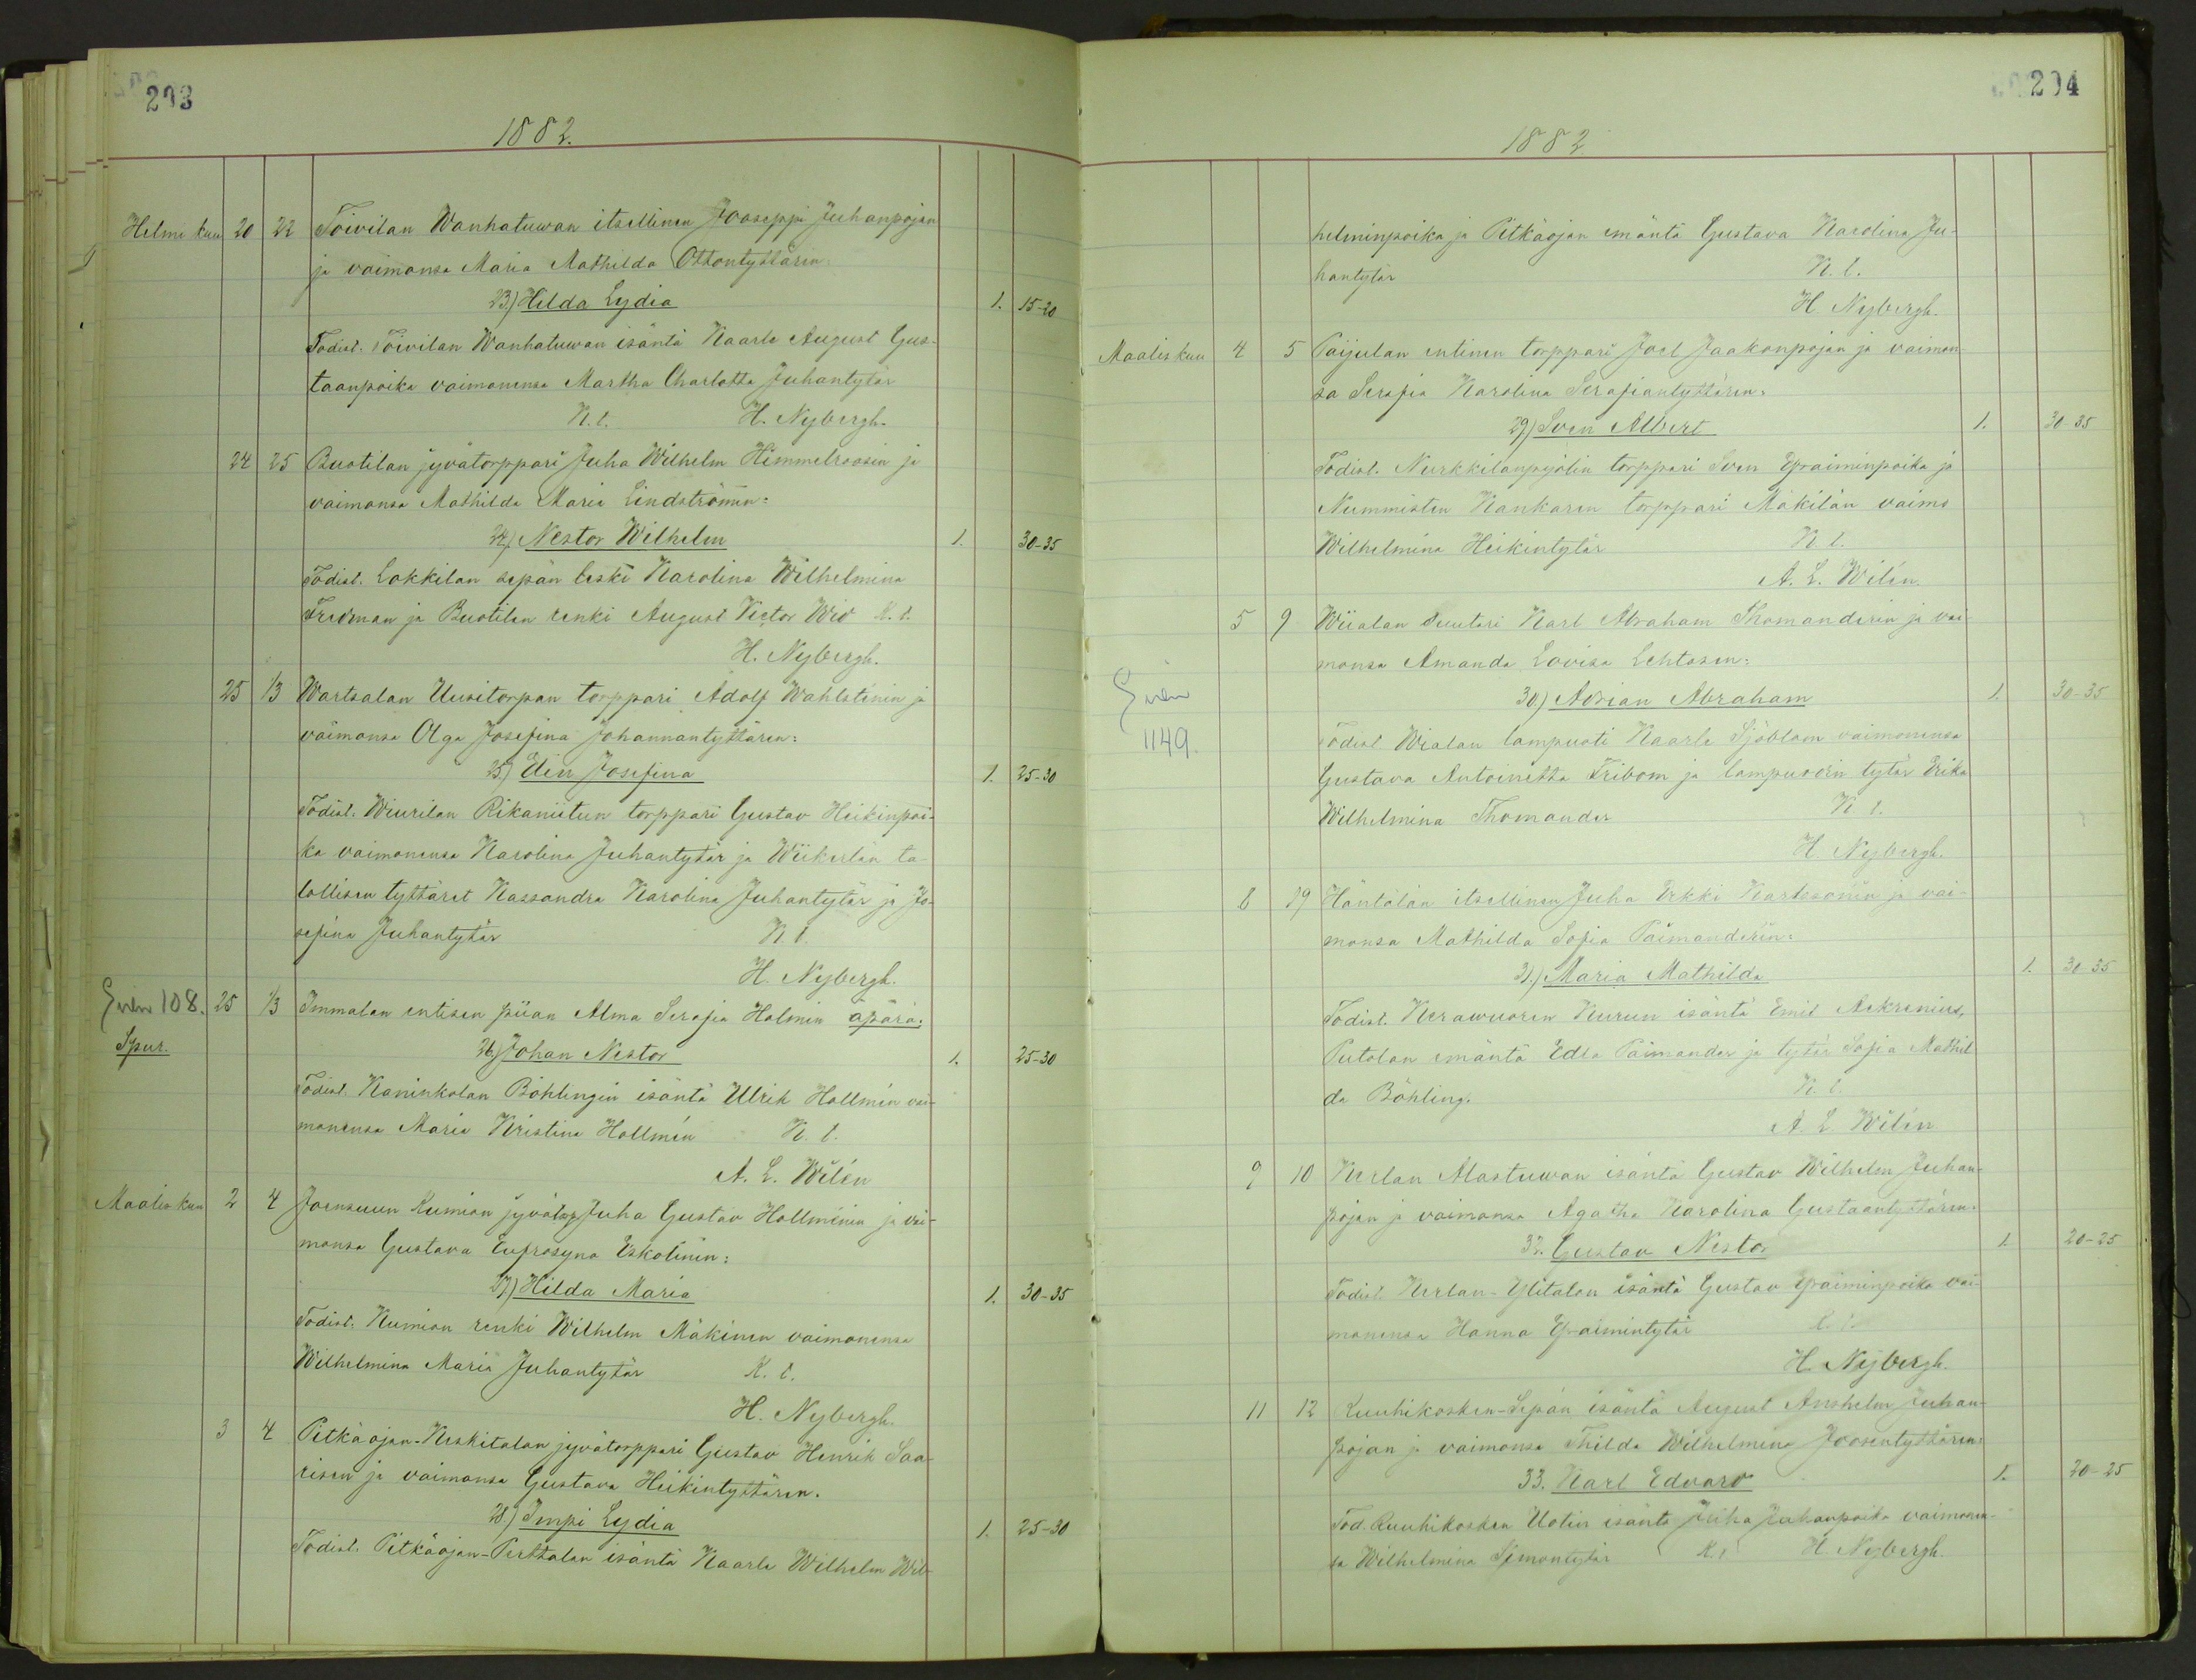 203
1882.
Helmi kuu 20 22 Toivilan Wanhatuwan itsellinen Jooseppi Juhanpojan
ja vaimonsa Maria Mathilda Ottontyttären:
23.) Hilda Lydia 1. 15-20
Todist. Toivilan Wanhatuwan isäntä Kaarle August Gus-
taanpoika vaimonensa Martha Charlotta Juhantytär
K. t. H. Nybergh.
24 25 Buotilan jyvätorppari Juha Wilhelm Himmelroosin ja
vaimonsa Mathilda Maria Lindströmin:
24.) Nestor Wilhelm 1. 30-35
Todist. Lokkilan sepän leski Karolina Wilhelmina
Fredman ja Buotilan renki August Victor Wid K. t.
H. Nybergh.
25 1/3 Wartsalan Uusitorpan torppari Adolf Wahlsténin ja
vaimonsa Olga Josefina Johannantyttären:
25.) Elin Josefina 1. 25-30
Todist. Wiurilan Rikaniitun torppari Gustav Heikinpoi-
ka vaimonensa Karolina Juhantytär ja Wiikerlän ta-
lollisen tyttäret Kassandra Karolina Juhantytär ja Jo-
sefina Juhantytär K. t.
H. Nybergh.
108. 25 1/3 Immalan entisen piian Alma Serafia Holmin äpärä:
Spur.
26.) Johan Nestor 1. 25-30
Todist. Kaninkolan Böhlingin isäntä Ulrik Hollmén vai-
monensa Maria Kristina Hollmén K. t.
A. L. Wilén
Maalis kuu 2 4 Joensuun Kumion jyvätorp Juha Gustav Hollménin ja vai-
monsa Gustava Eufrosyna Eskolinin:
27.) Hilda Maria 1. 30-35
Todist. Kumion renki Wilhelm Mäkinen vaimonensa
Wilhelmina Maria Juhantytär K. t.
H. Nybergh.
3 4 Pitkäojan-Keskitalon jyvätorppari Gustav Henrik Saa-
risen ja vaimonsa Gustava Heikintyttären.
28.) Impi Lydia 1. 25-30
Todist. Pitkäojan-Perttalan isäntä Kaarle Wilhelm Wil-
204
1882
helminpoika ja Pitkäojan emäntä Gustava Karolina Ju-
hantytär K. t.
H. Nybergh.
Maalis kuu 4 5 Paijulan entinen torppari Joel Jaakonpojan ja vaimon
sa Serafia Karolina Serafiantyttären:
29.) Sven Albert 1. 30-35
Todist. Nurkkilanpyölin torppari Sven Epraiminpoika ja
Nummisten Kankaren torppari Mäkilän vaimo
Wilhelmina Heikintytär K. t.
A. L. Wilén.
5 9 Wiialan suutari Karl Abraham Thomanderin ja vai
monsa Amanda Lovisa Lehtosen:
1149.
30.) Adrian Abraham 1. 30-35
Todist. Wialan lampuoti Kaarle Sjöblom vaimonensa
Gustava Antoinetta Fribom ja lampuodin tytär Erika
Wilhelmina Thomander K. t.
H. Nybergh.
8 19 Häntälän itsellinen Juha Erkki Karlssonin ja vai-
monsa Mathilda Sofia Paimanderin:
31.) Maria Mathilda 1. 30-35
Todist. Kerawuoren Kurun isäntä Emil Askrenius,
Putolan emäntä Edla Paimander ja tytär Sofia Mathil
da Böhling. K. t.
A. L. Wilén
9 10 Kerlan Alastuwan isäntä Gustav Wilhelm Juhan-
pojan ja vaimonsa Agatha Karolina Gustaantyttären:
32. Gustav Nestor 1. 20-25
Todist. Kerlan-Ylitalon isäntä Gustav Epraiminpoika vai-
monensa Hanna Epraimintytär K. t.
H. Nybergh.
11 12 Kuuhikosken-Sepän isäntä August Anshelm Juhan-
pojan ja vaimonsa Thilda Wilhelmina Joosentyttären:
33. Karl Edvard 1. 20-25
Tod. Kuuhikosken Uotin isäntä Juha Juhanpoika vaimonen-
sa Wilhelmina Simontytär K. t. H. Nybergh.